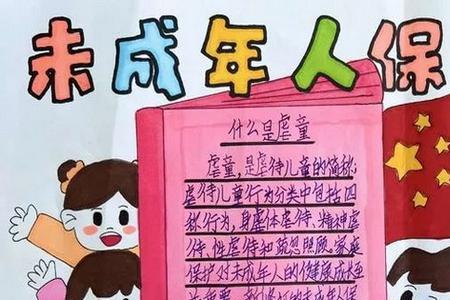 未成年人保
什么是虐童
虐童,是虐待儿童的简称,
虐待儿童行为分类中包括四
种行为,身体虐待、精神虐
待、性虐待和疏忽照顾。家庭
保护对未成年人的健康成长至